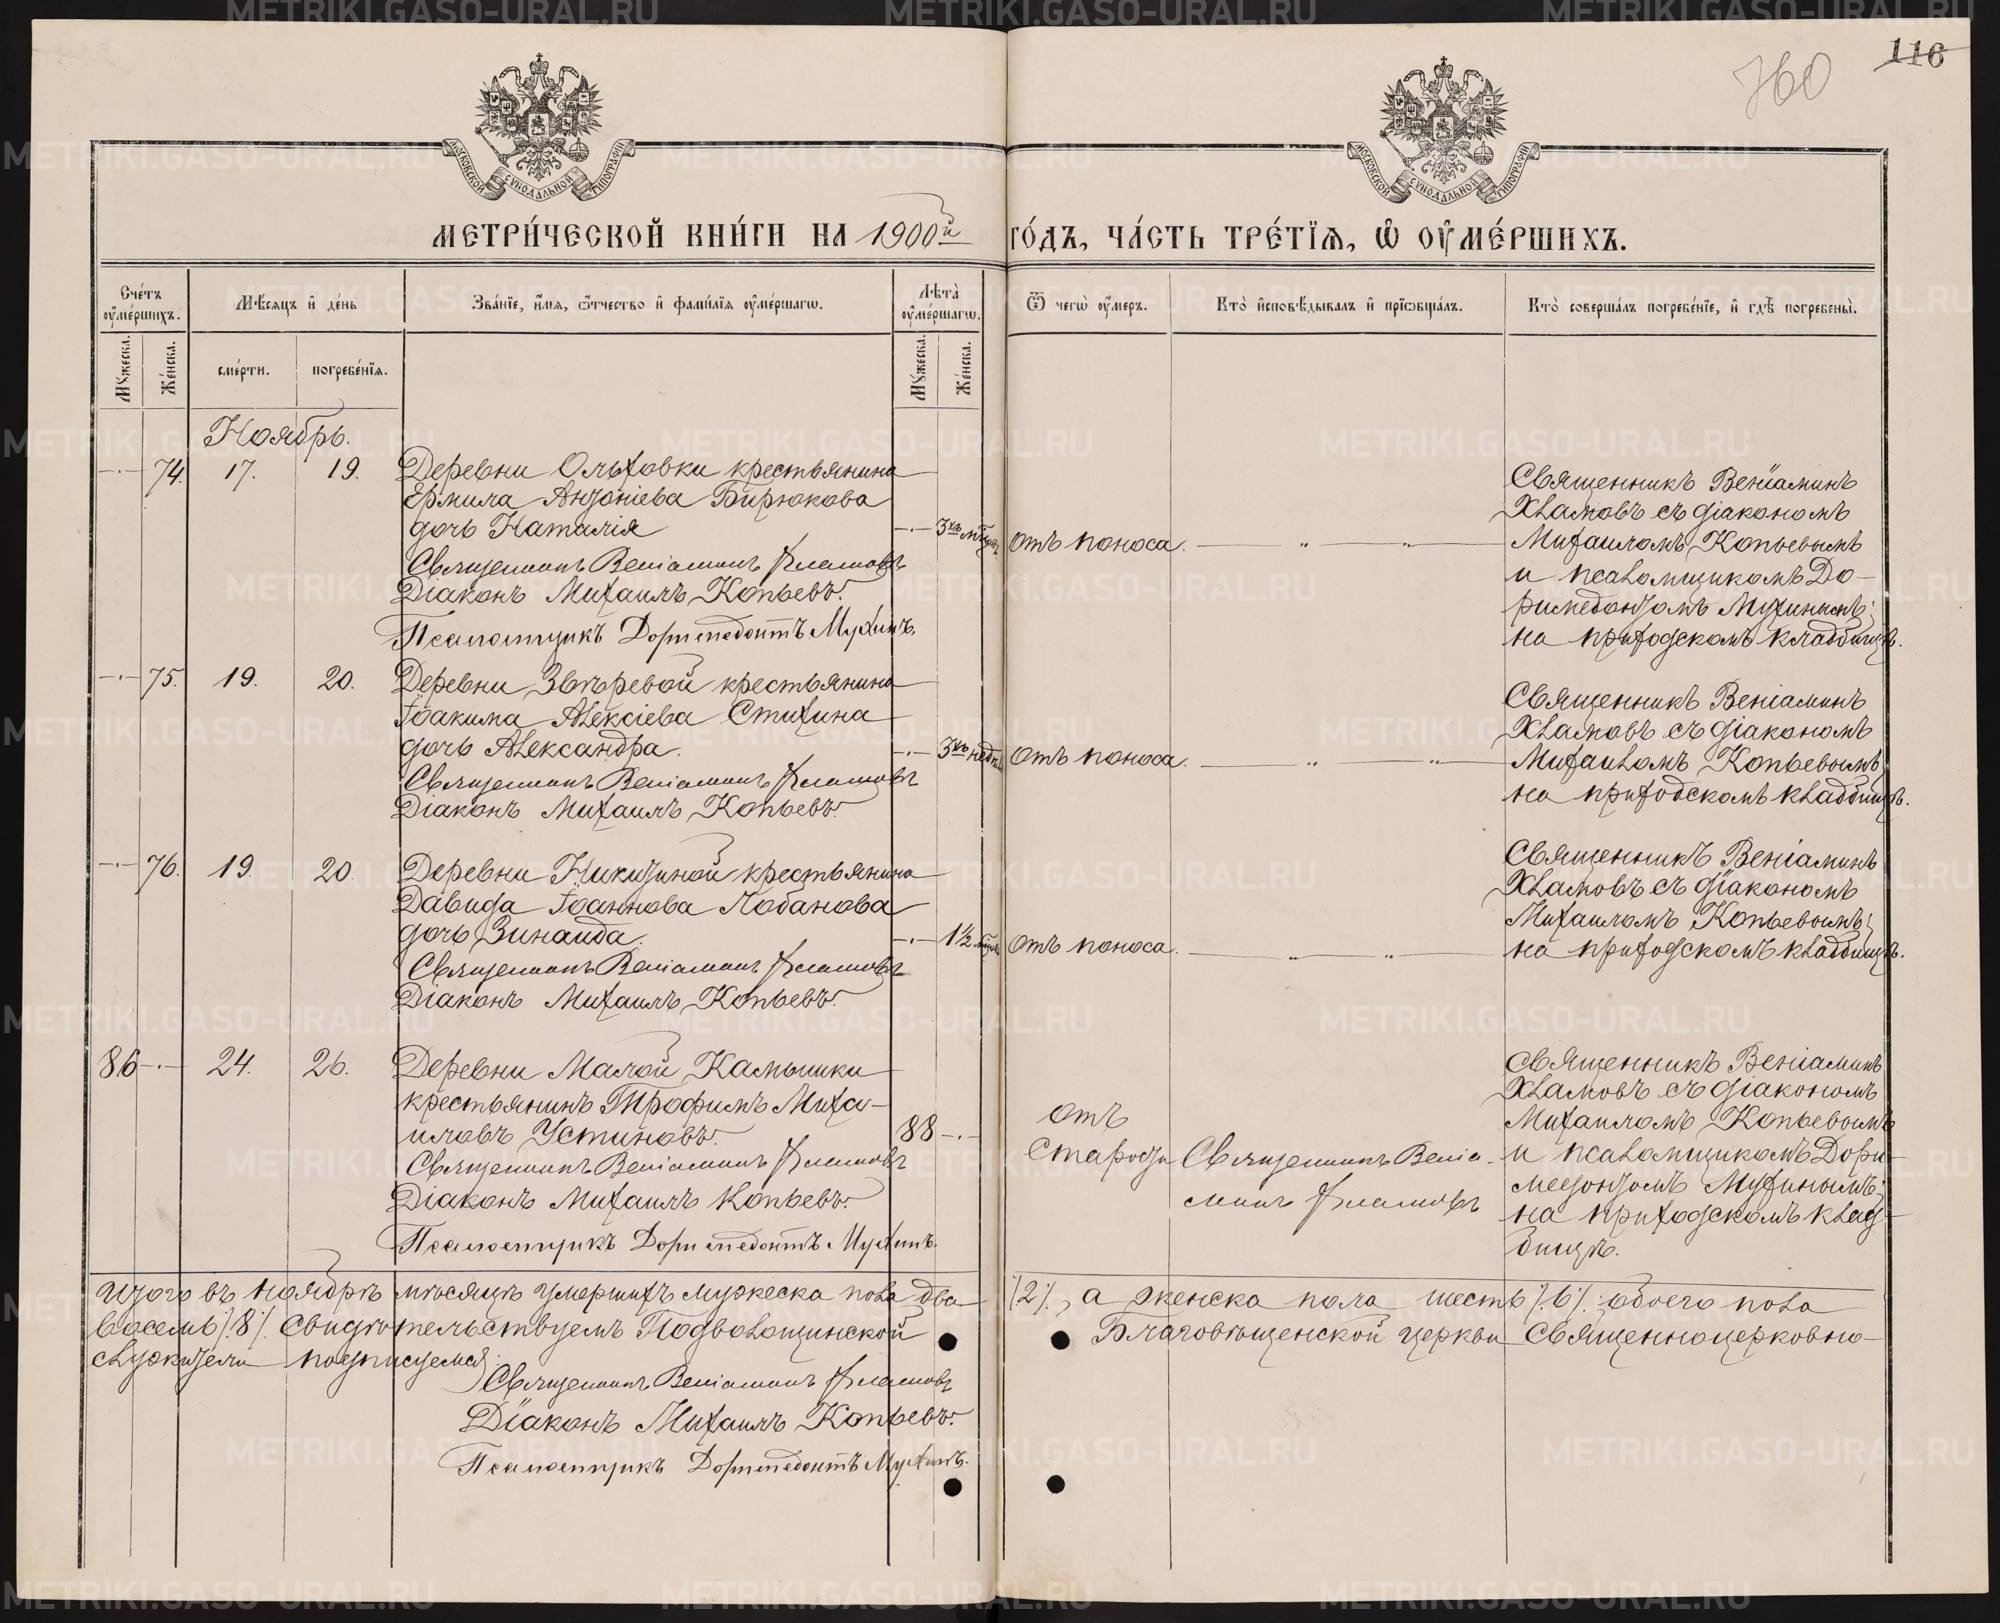 116
760
МОСКОВСКОЙ СѴНОДАЛЬНОЙ ТИПОГРАФІИ
МОСКОВСКОЙ СѴНОДАЛЬНОЙ ТИПОГРАФІИ
МЕТРИ́ЧЕСКОЙ КНИ́ГИ НА 1900й ГО́ДЪ, ЧА́СТЬ ТРЕ́ТЇѦ, Ѡ҆ ОУ҆МЕ́РШИХЪ.
Сче́тъ оу҆ме́ршихъ.
Мѣ́сѧцъ и҆ де́нь
Зва́нїе, и҆́мѧ, ѻ҆́тчество и҆ фами́лїѧ оу҆ме́ршагѡ.
Лѣ́та оу҆ме́ршагѡ.
Ѿ чегѡ̀ оу҆́меръ.
Кто̀ и҆сповѣ́дывалъ и҆ прїѡбща́лъ.
Кто̀ соверша́лъ погребе́нїе, и҆ гдѣ̀ погребены̀.
Мꙋ́жеска.
Же́нска.
сме́рти.
погребе́нїѧ.
Мꙋ́жеска.
Же́нска.
Ноябрь.
74. 17. 19.
Деревни Ольховки крестьянина
Ермила Антоніева Бирюкова
дочь Наталія
Священникъ Веніаминъ Хламовъ
Діаконъ Михаилъ Копьевъ.
Псаломщикъ Доримедонтъ Мухинъ.
3хъ мѣсяц.
отъ поноса.
Священникъ Веніаминъ
Хламовъ съ діакономъ
Михаиломъ Копьевымъ
и псаломщикомъ До-
римедонтомъ Мухинымъ;
на приходскомъ кладбищѣ.
75. 19. 20.
Деревни Звѣревой крестьянина
Іоакима Алексіева Стихина
дочь Александра.
Священникъ Веніаминъ Хламовъ
Діаконъ Михаилъ Копьевъ.
3хъ недѣль
отъ поноса.
Священникъ Веніаминъ
Хламовъ съ діакономъ
Михаиломъ Копьевымъ;
на приходскомъ кладбищѣ.
76. 19. 20.
Деревни Никитиной крестьянина
Давида Іоаннова Лобанова
дочь Зинаида.
Священникъ Веніаминъ Хламовъ
Діаконъ Михаилъ Копьевъ.
1½ мѣсяц.
отъ поноса.
Священникъ Веніаминъ
Хламовъ съ діакономъ
Михаиломъ Копьевымъ;
на приходскомъ кладбищѣ.
86 24. 26.
Деревни Малой Камышки
крестьянинъ Трофимъ Миха-
иловъ Устиновъ.
Священникъ Веніаминъ Хламовъ
Діаконъ Михаилъ Копьевъ.
Псаломщикъ Доримедонтъ Мухинъ.
88
отъ
старости
Священникъ Веніа-
минъ Хламовъ
Священникъ Веніаминъ
Хламовъ съ діакономъ
Михаиломъ Копьевымъ
и псаломщикомъ Дори-
медонтомъ Мухинымъ;
на приходскомъ клад-
бищѣ.
Итого въ ноябрѣ мѣсяцѣ умершихъ мужеска пола два /.2./, а женска пола шесть /.6./. обоего пола
восемь /.8./. Свидѣтельствуемъ Подволошинской Благовѣщенской церкви Священноцерковно-
служители подписуемся:
Священникъ Веніаминъ Хламовъ
Діаконъ Михаилъ Копьевъ.
Псаломщикъ Доримедонтъ Мухинъ.
METRIKI.GASO-URAL.RU